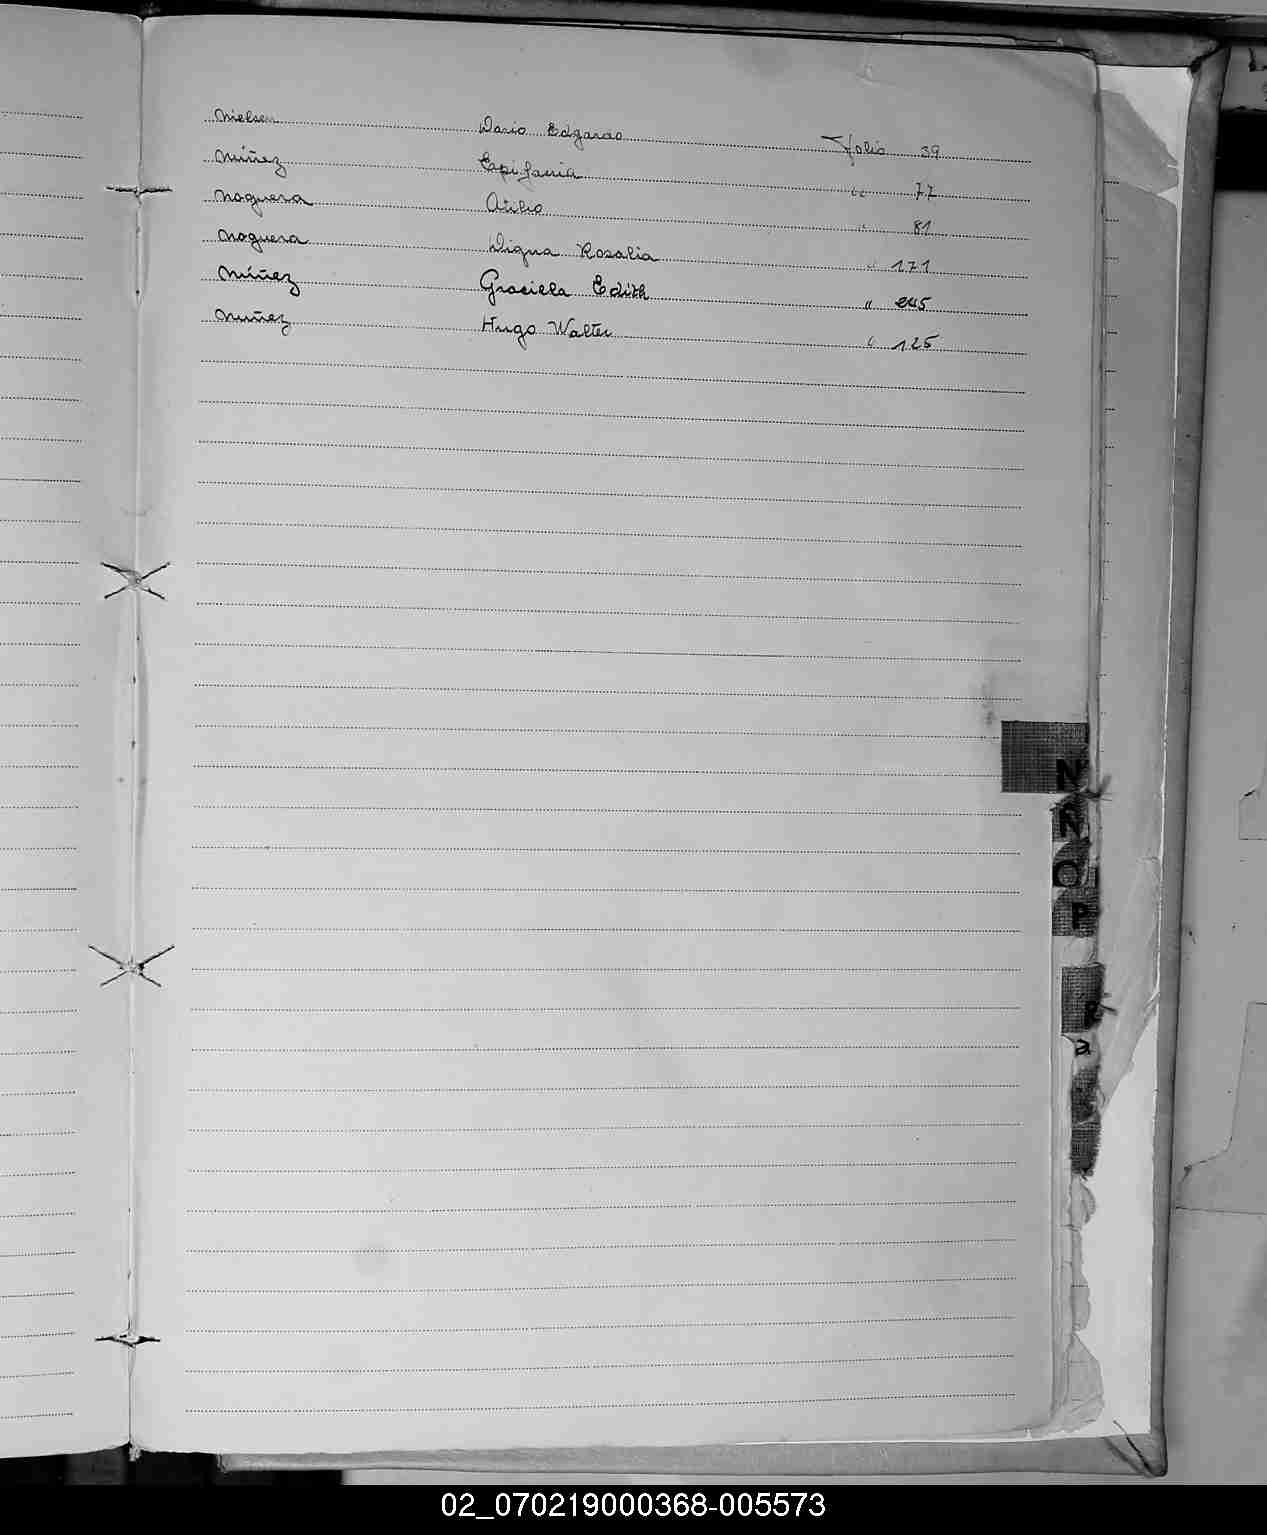 Nielsen Dario Edgardo folio 39
Núñez Epifania " 77
Noguera Atilio " 81
Noguera Digna Rosalia " 171
Núñez Graciela Edith " 245
Nuñez Hugo Walter " 125
N
Ñ
O
P
R
02_070219000368-005573